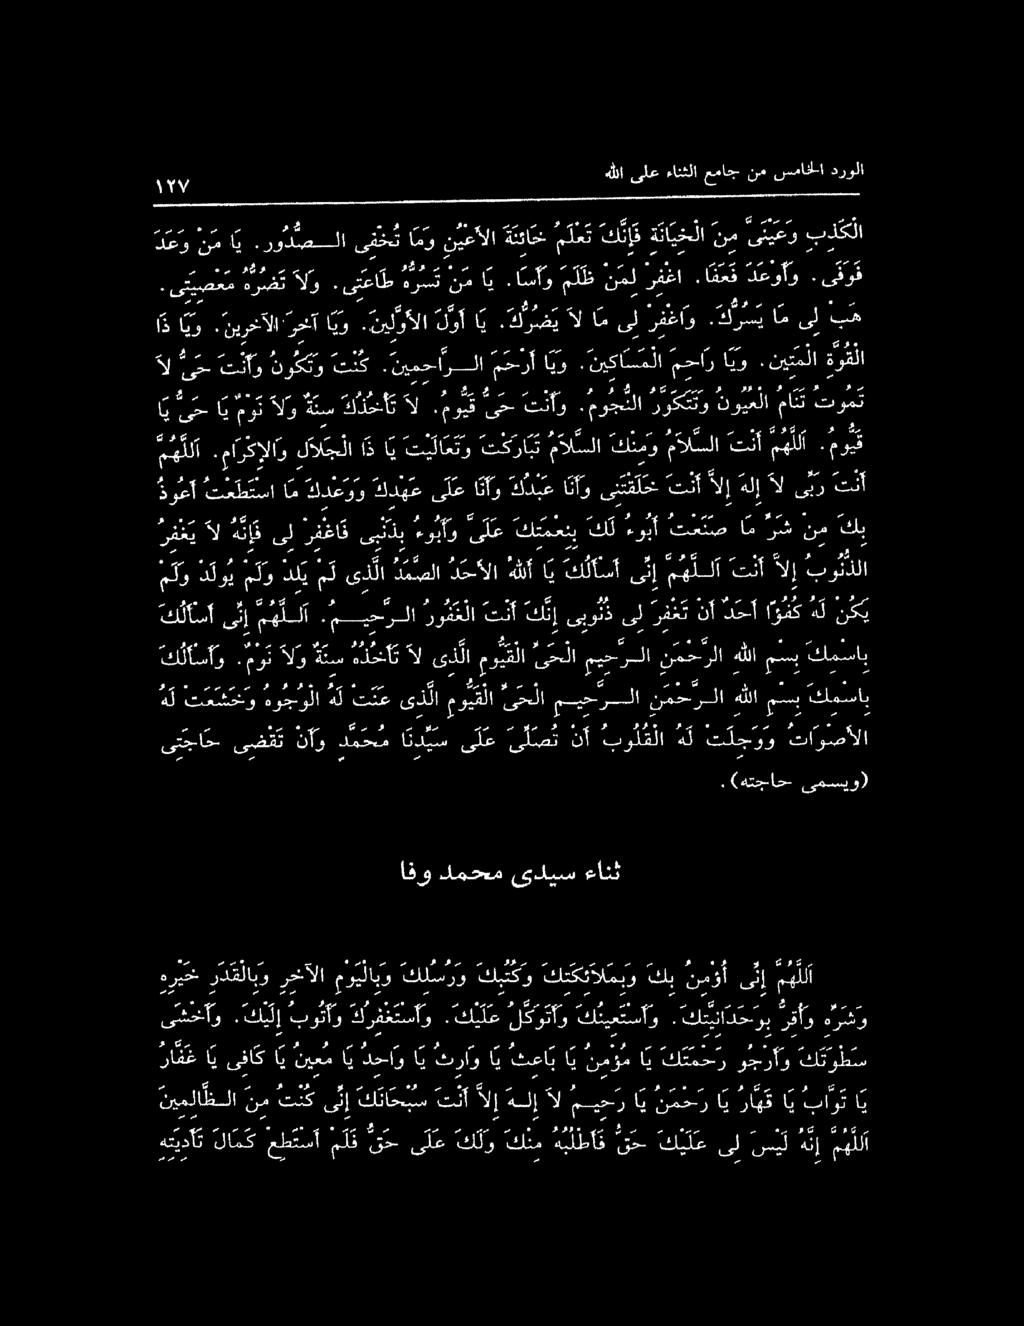 الورد الخامس من جامع الثناء على الله
١٢٧
الْكَذِبِ وَعَيْنَىَّ مِنَ الْخِيَانَةِ فَإِنَّكَ تَعْلَمُ خَائِنَةَ الأَعْيُنِ وَمَا تُخْفِى الـصُّدُور. يَا مَنْ وَعَدَ
فَوَفَى. وَأَوْعَدَ فَعَفَا. اغْفِرْ لِمَنْ ظَلَمَ وَأَسَا. يَا مَنْ تَسُرُّهُ طَاعَتِى. وَلاَ تَضُرُّهُ مَعْصِيَتِى.
هَبْ لِى مَا يَسُرُّكَ. وَاغْفِرْ لِى مَا لاَ يَضُرُّكَ. يَا أَوَّلَ الأَوَّلِينَ. وَيَا آخِرَ الآخِرِينَ. وَيَا ذَا
الْقُوَّةِ الْمَتِينِ. وَيَا رَاحِمَ الْمَسَاكِينَ. وَيَا أَرْحَمَ الـرَّاحِمِينَ. كُنْتَ وَتَكُونُ وَأَنْتَ حَىٌّ لاَ
تَمُوتُ تَنَامُ الْعُيُونُ وَتَتَكَوَّرُ النُّجُومُ. وَأَنْتَ حَىٌّ قَيُّومٌ. لاَ تَأْخُذُكَ سِنَةٌ وَلاَ نَوْمٌ يَا حَىُّ يَا
قَيُّومُ. اَللَّهُمَّ أَنْتَ السَّلاَمُ وَمِنْكَ السَّلاَمُ تَبَارَكْتَ وَتَعَالَيْتَ يَا ذَا الْجَلاَلِ وَالإِكْرَامِ. اَللَّهُمَّ
أَنْتَ رَبِّى لاَ إِلهَ إِلاَّ أَنْتَ خَلَقْتَنِى وَأَنَا عَبْدُكَ وَأَنَا عَلَى عَهْدِكَ وَوَعْدِكَ مَا اسْتَطَعْتُ أَعُوذُ
بِكَ مِنْ شَرِّ مَا صَنَعْتُ أَبُوءُ لَكَ بِنِعْمَتِكَ عَلَىَّ وَأَبُوءُ بِذَنْبِى فَاغْفِرْ لِى فَإِنَّهُ لاَ يَغْفِرُ
الذُّنُوبَ إِلاَّ أَنْتَ اَلـلَّهُمَّ إِنِّى أَسْأَلُكَ يَا اَللهُ الأَحَدُ الصَّمَدُ الَّذِى لَمْ يَلِدْ وَلَمْ يُولَدْ وَلَمْ
يَكُنْ لَهُ كُفُؤًا أَحَدٌ أَنْ تَغْفِرَ لِى ذُنُوبِى إِنَّكَ أَنْتَ الْغَفُورُ الـرَّحِيـمُ. اَلـلَّهُمَّ إِنِّى أَسْأَلُكَ
بِاسْمِكَ بِسْمِ اللهِ الرَّحْمَنِ الـرَّحِيمِ الْحَىِّ الْقَيُّومِ الَّذِى لاَ تَأْخُذُهُ سِنَةٌ وَلاَ نَوْمٌ. وَأَسْأَلُكَ
بِاسْمِكَ بِسْمِ اللهِ الـرَّحْمَنِ الـرَّحِيـمِ الْحَىِّ الْقَيُّومِ الَّذِى عَنَتْ لَهُ الْوُجُوهُ وَخَشَعَتْ لَهُ
الأَصْوَاتُ وَوَجِلَتْ لَهُ الْقُلُوبُ أَنْ تُصَلِّىَ عَلَى سَيِّدِنَا مُحَمَّدٍ وَأَنْ تَقْضِى حَاجَتِى
(ويسمى حاجته).
ثناء سيدى محمد وفا
اَللَّهُمَّ إِنِّى أُؤْمِنُ بِكَ وَبِمَلاَئِكَتِكَ وَكُتُبِكَ وَرُسُلِكَ وَبِالْيَوْمِ الآخِرِ وَبِالْقَدَرِ خَيْرِهِ
وَشَرِّهِ وَأُقِرُّ بِوَحْدَانِيَّتِكَ. وَأَسْتَعِينُكَ وَأَتَوَكَّلُ عَلَيْكَ. وَأَسْتَغْفِرُكَ وَأَتُوبُ إِلَيْكَ. وَأَخْشَى
سَطْوَتَكَ وَأَرْجُو رَحْمَتَكَ يَا مُؤْمِنُ يَا بَاعِثُ يَا وَارِثُ يَا وَاحِدُ يَا مُعِينُ يَا كَافِى يَا غَفَّارُ
يَا تَوَّابُ يَا قَهَّارُ يَا رَحْمَنُ يَا رَحِيـمُ لاَ إِلـهَ إِلاَّ أَنْتَ سُبْحَانَكَ إِنِّى كُنْتُ مِنَ الـظَّالِمِينَ
اَللَّهُمَّ إِنَّهُ لَيْسَ لِى عَلَيْكَ حَقٌّ فَأَطْلُبُهُ مِنْكَ وَلَكَ عَلَى حَقٌّ فَلَمْ أَسْتَطِعْ كَمَالَ تَأْدِيَتِهِ